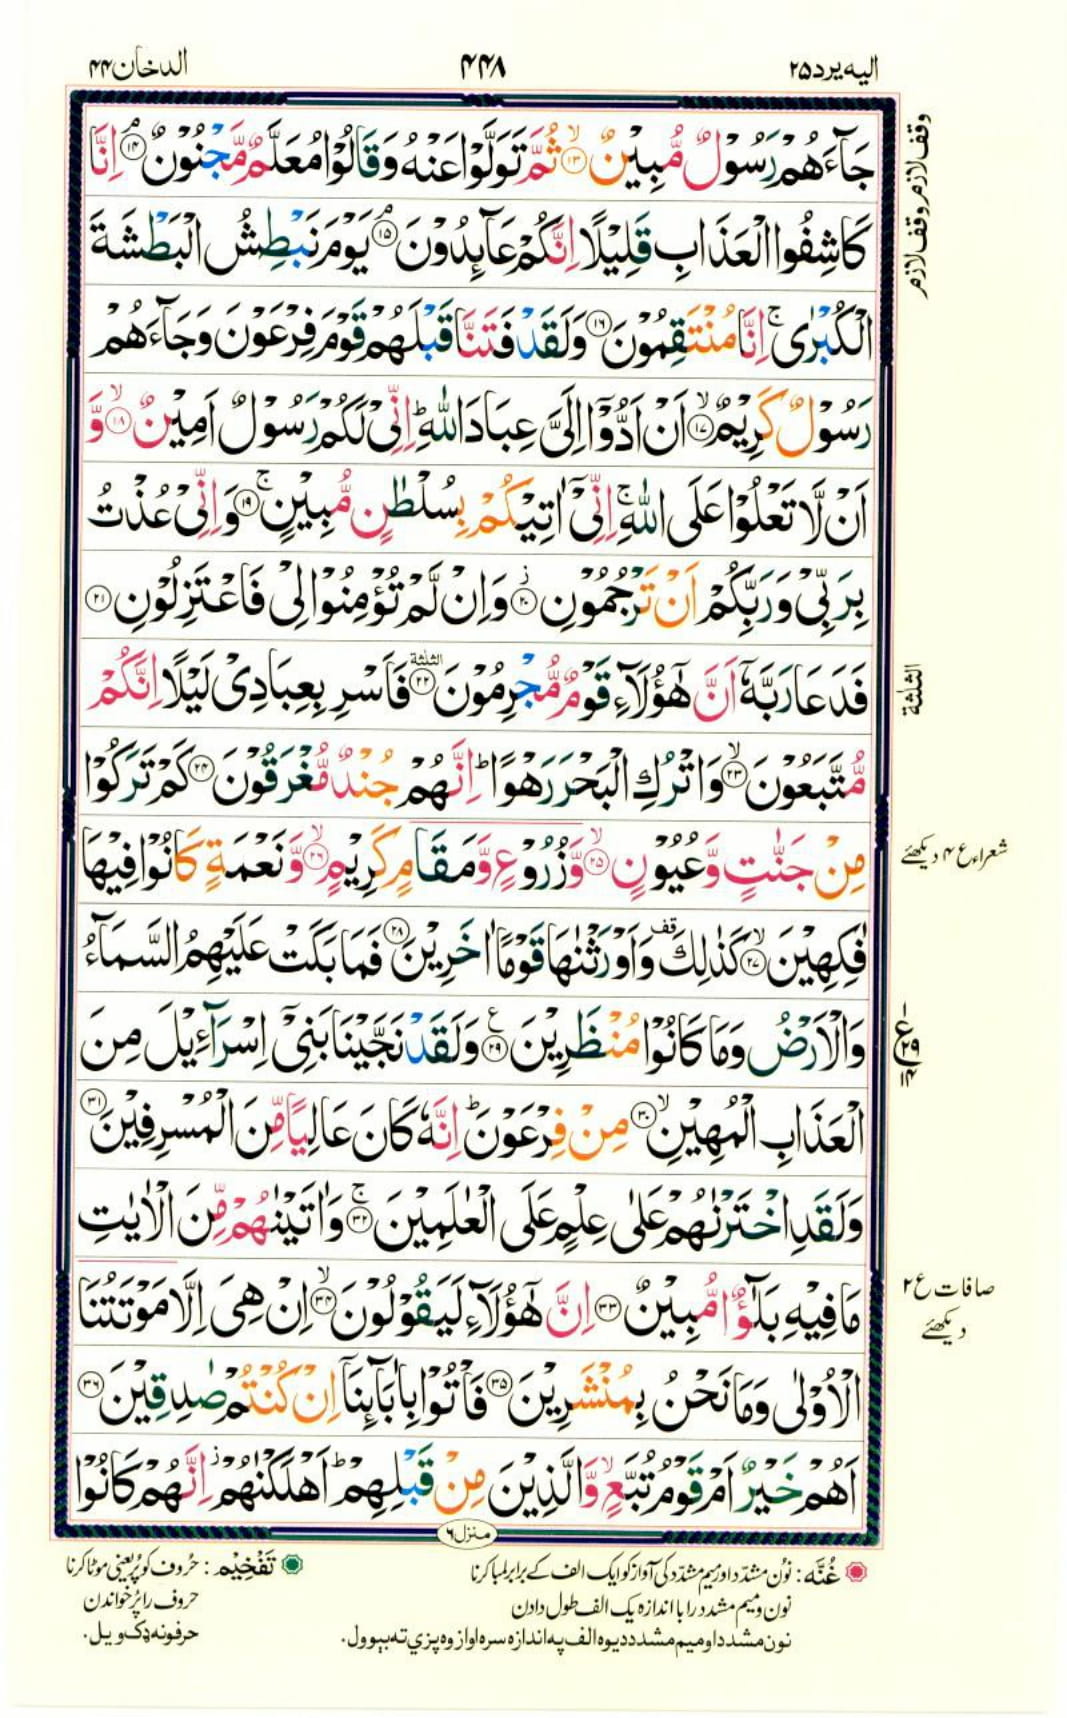 الیه یرد ۲۵
۴۴۸
الدخان ۴۴
جَآءَهُمْ رَسُوْلٌ مُّبِيْنٌ ۙ‏﴿۱۳﴾ ثُمَّ تَوَلَّوْا عَنْهُ وَقَالُوْا مُعَلَّمٌ مَّجْنُوْنٌ ۘ‏﴿۱۴﴾ اِنَّا
كَاشِفُوا الْعَذَابِ قَلِيْلًا اِنَّكُمْ عَآئِدُوْنَ ۘ‏﴿۱۵﴾ يَوْمَ نَبْطِشُ الْبَطْشَةَ
الْكُبْرٰى ۚ اِنَّا مُنْتَقِمُوْنَ ﴿۱۶﴾ وَلَقَدْ فَتَنَّا قَبْلَهُمْ قَوْمَ فِرْعَوْنَ وَجَآءَهُمْ
رَسُوْلٌ كَرِيْمٌ ۙ‏﴿۱۷﴾ اَنْ اَدُّوْۤا اِلَىَّ عِبَادَ اللّٰهِ ؕ اِنِّىْ لَكُمْ رَسُوْلٌ اَمِيْنٌ ۙ‏﴿۱۸﴾ وَّ
اَنْ لَّا تَعْلُوْا عَلَى اللّٰهِ ۚ اِنِّىْۤ اٰتِيْكُمْ بِسُلْطٰنٍ مُّبِيْنٍ ۚ‏﴿۱۹﴾ وَاِنِّىْ عُذْتُ
بِرَبِّىْ وَرَبِّكُمْ اَنْ تَرْجُمُوْنِ ۫‏﴿۲۰﴾ وَاِنْ لَّمْ تُؤْمِنُوْا لِىْ فَاعْتَزِلُوْنِ ﴿۲۱﴾
فَدَعَا رَبَّهٗۤ اَنَّ هٰٓؤُلَآءِ قَوْمٌ مُّجْرِمُوْنَ ﴿۲۲﴾ الثلٰثة فَاَسْرِ بِعِبَادِىْ لَيْلًا اِنَّكُمْ
مُّتَّبَعُوْنَ ۙ‏﴿۲۳﴾ وَاتْرُكِ الْبَحْرَ رَهْوًا ؕ اِنَّهُمْ جُنْدٌ مُّغْرَقُوْنَ ﴿۲۴﴾ كَمْ تَرَكُوْا
مِنْ جَنّٰتٍ وَّعُيُوْنٍ ۙ‏﴿۲۵﴾ وَّزُرُوْعٍ وَّمَقَامٍ كَرِيْمٍ ۙ‏﴿۲۶﴾ وَّنَعْمَةٍ كَانُوْا فِيْهَا
فٰكِهِيْنَ ۙ‏﴿۲۷﴾ كَذٰلِكَ قف وَاَوْرَثْنٰهَا قَوْمًا اٰخَرِيْنَ ﴿۲۸﴾ فَمَا بَكَتْ عَلَيْهِمُ السَّمَآءُ
وَالْاَرْضُ وَمَا كَانُوْا مُنْظَرِيْنَ ﴿۲۹﴾ ع وَلَقَدْ نَجَّيْنَا بَنِىْۤ اِسْرَآءِيْلَ مِنَ
الْعَذَابِ الْمُهِيْنِ ۙ‏﴿۳۰﴾ مِنْ فِرْعَوْنَ ؕ اِنَّهٗ كَانَ عَالِيًا مِّنَ الْمُسْرِفِيْنَ ﴿۳۱﴾
وَلَقَدِ اخْتَرْنٰهُمْ عَلٰى عِلْمٍ عَلَى الْعٰلَمِيْنَ ۚ‏﴿۳۲﴾ وَاٰتَيْنٰهُمْ مِّنَ الْاٰيٰتِ
مَا فِيْهِ بَلٰٓؤٌا مُّبِيْنٌ ﴿۳۳﴾ اِنَّ هٰٓؤُلَآءِ لَيَقُوْلُوْنَ ۙ‏﴿۳۴﴾ اِنْ هِىَ اِلَّا مَوْتَتُنَا
الْاُوْلٰى وَمَا نَحْنُ بِمُنْشَرِيْنَ ﴿۳۵﴾ فَاْتُوْا بِاٰبَآئِنَاۤ اِنْ كُنْتُمْ صٰدِقِيْنَ ﴿۳۶﴾
اَهُمْ خَيْرٌ اَمْ قَوْمُ تُبَّعٍ ۙ وَّالَّذِيْنَ مِنْ قَبْلِهِمْ ؕ اَهْلَكْنٰهُمْ ۫ اِنَّهُمْ كَانُوْا
وقف لازم وقف لازم
الثلٰثة
شعراء ع ۴ دیکھئے
ع
۲۹
۱۴
صافات ع ۲
دیکھئے
منزل ۶
غُنَّه: نوُن مشدّد اور میم مشدّد کی آواز کو ایک الف کے برابر لمبا کرنا
نون و میم مشدد را با اندازه یک الف طول دادن
نون مشدد او میم مشدد دیوه الف په اندازه سره اواز وه پزي ته بېوول.
تَفْخِيْم: حرُوف کو پُر یعنی موٹا کرنا
حروف را پُر خواندن
حرفونه ډک ویل.